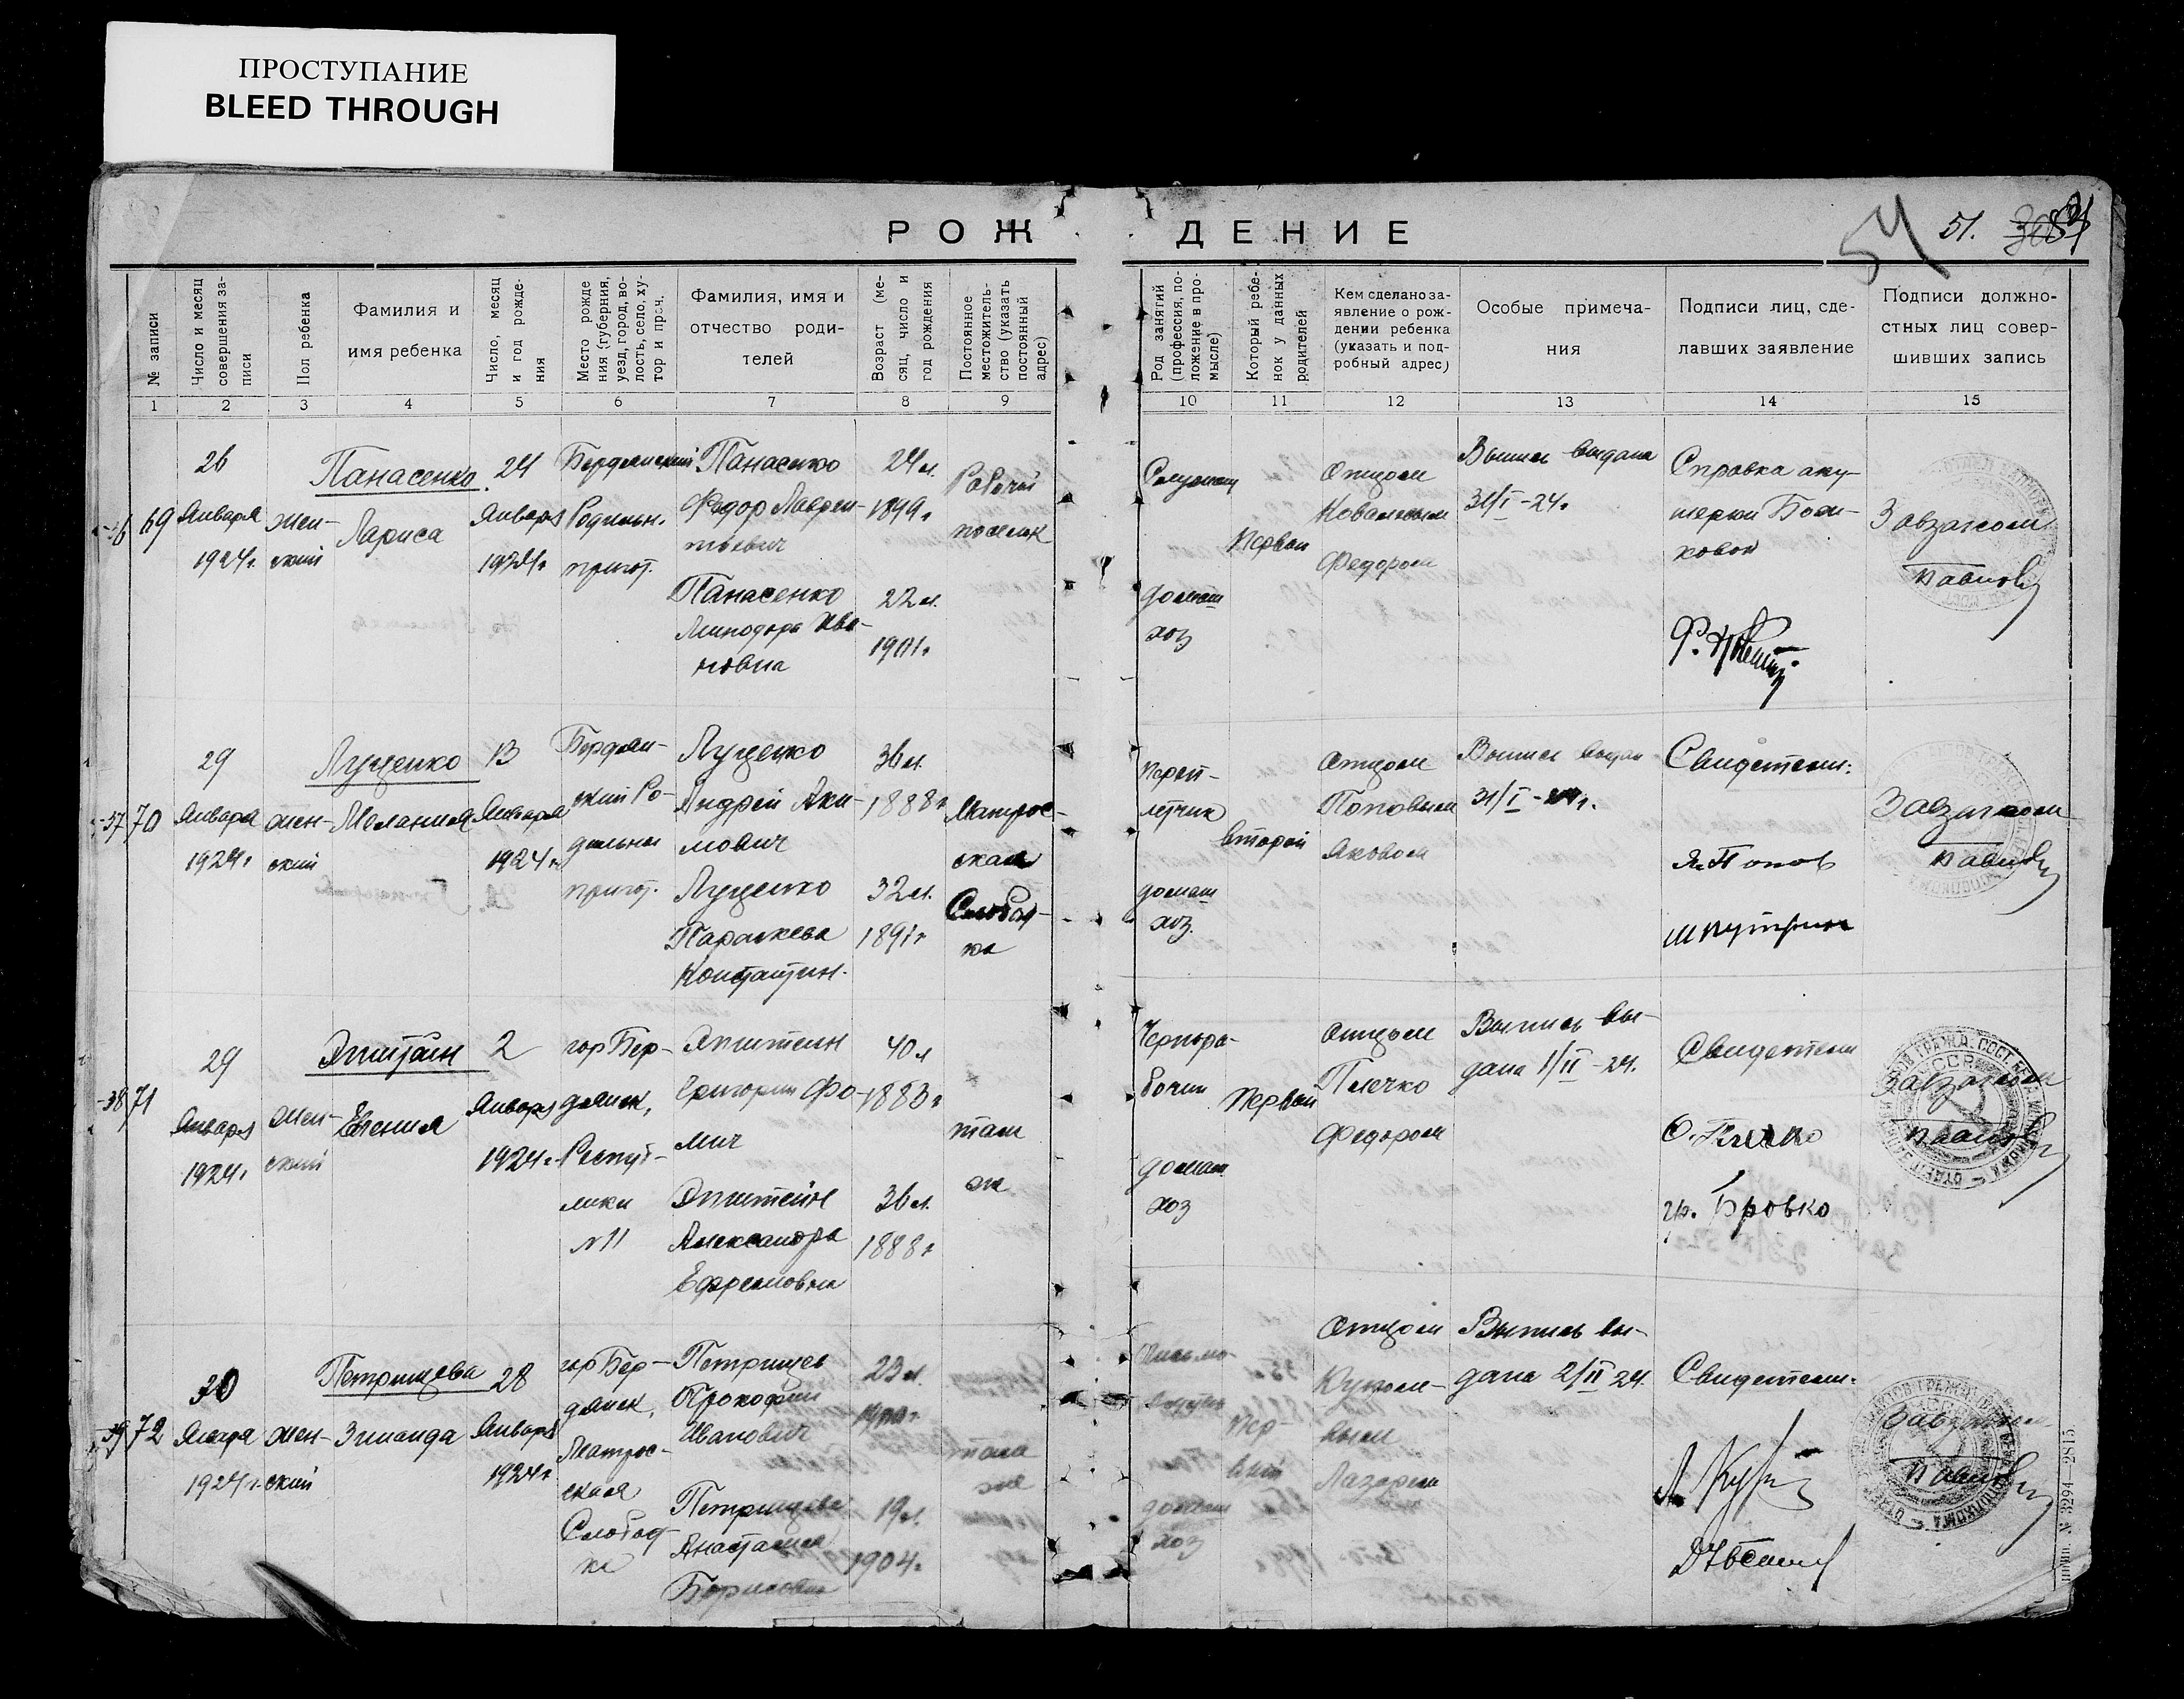 ПРОСТУПАНИЕ
BLEED THROUGH
РОЖДЕНИЕ
54 51.
№ записи
Число и месяц совершения записи
Пол ребенка
Фамилия и
имя ребенка
Число, месяц
и год рожде-
ния
Место рожде
ния (губерния,
уезд, город, во-
лость, село, ху-
тор и проч.
Фамилия, имя и
отчество роди-
телей
Возраст (ме-
сяц, число и
год рождения
Постоянное
местожитель-
ство (указать
постоянный
адрес)
Род занятий
(профессия, по-
ложение в про-
мысле)
Который ребе-
нок у данных
родителей
Кем сделано за-
явление о рож-
дении ребенка
(указать и под-
робный адрес)
Особые примеча-
ния
Подписи лиц, сде-
лавших заявление
Подписи должно-
стных лиц совер-
шивших запись
1 2 3 4 5 6 7 8 9 10 11 12 13 14 15
69
26
Января
1924г.
жен-
ский
Панасенко
Лариса
24
Января
1924г
Бердянский
Родильн.
приют.
Панасенко
Федор Лаврен-
тьевич
Панасенко
Минодора Ива-
новна
24 л.
1899г
22 л.
1901г
Рабочий
поселок
домаш
хоз
Первый
Отцом
Федором
Выпись выдана
31/I-24г
Справка аку-
шерки
Завзагсом
37 70
29
Января
1924г
жен-
ский
Луценко
Мелания
13
Января
1924г
Бердян-
ский Ро-
дильны
приют.
Луценко
Андрей Аки-
мович
Луценко
Параскева
Константин.
36 л.
1888г
32 л.
1891г
Матрос-
ская
Слобод-
ка
Переп-
летчик
домаш
хоз.
второй
Отцом
Поповым
Яковом
Выпись выдан
31/I-24г.
Свидетели:
Я Попов
Завзагсом
38 71
29
Января
1924г
жен-
ский
Эпштейн
Евгения
2
Января
1924г.
гор Бер-
дянск,
Респуб-
лики
N 11
Эпштейн
Григорий Фо-
мич
Эпштейн
Александра
Ефремовна
40 л
1883г
36 л.
1888г
там
же
Чернора-
бочий
домаш
хоз
Первый
Отцом
Плечко
Федором
Выпись вы-
дана 1/II-24.
Свидетели
Ф. Плечко
гр. Бровко
Завзагсом
39 72
30
Января
1924г.
жен-
ский
Петрищева
Зинаида
28
Января
1924г
гор Бер-
дянск,
Матрос-
ская
Слобод-
ка
Петрищев
Прокофий
Иванович
Петрищева
Анастасия
Борисовна
23 л.
19 л.
1904г.
там
же
домаш
хоз
Пер-
вый
Отцом
Лазарем
Выпись вы-
дана 2/II 24.
Свидетели:
Завзагсом
N 3294—2815